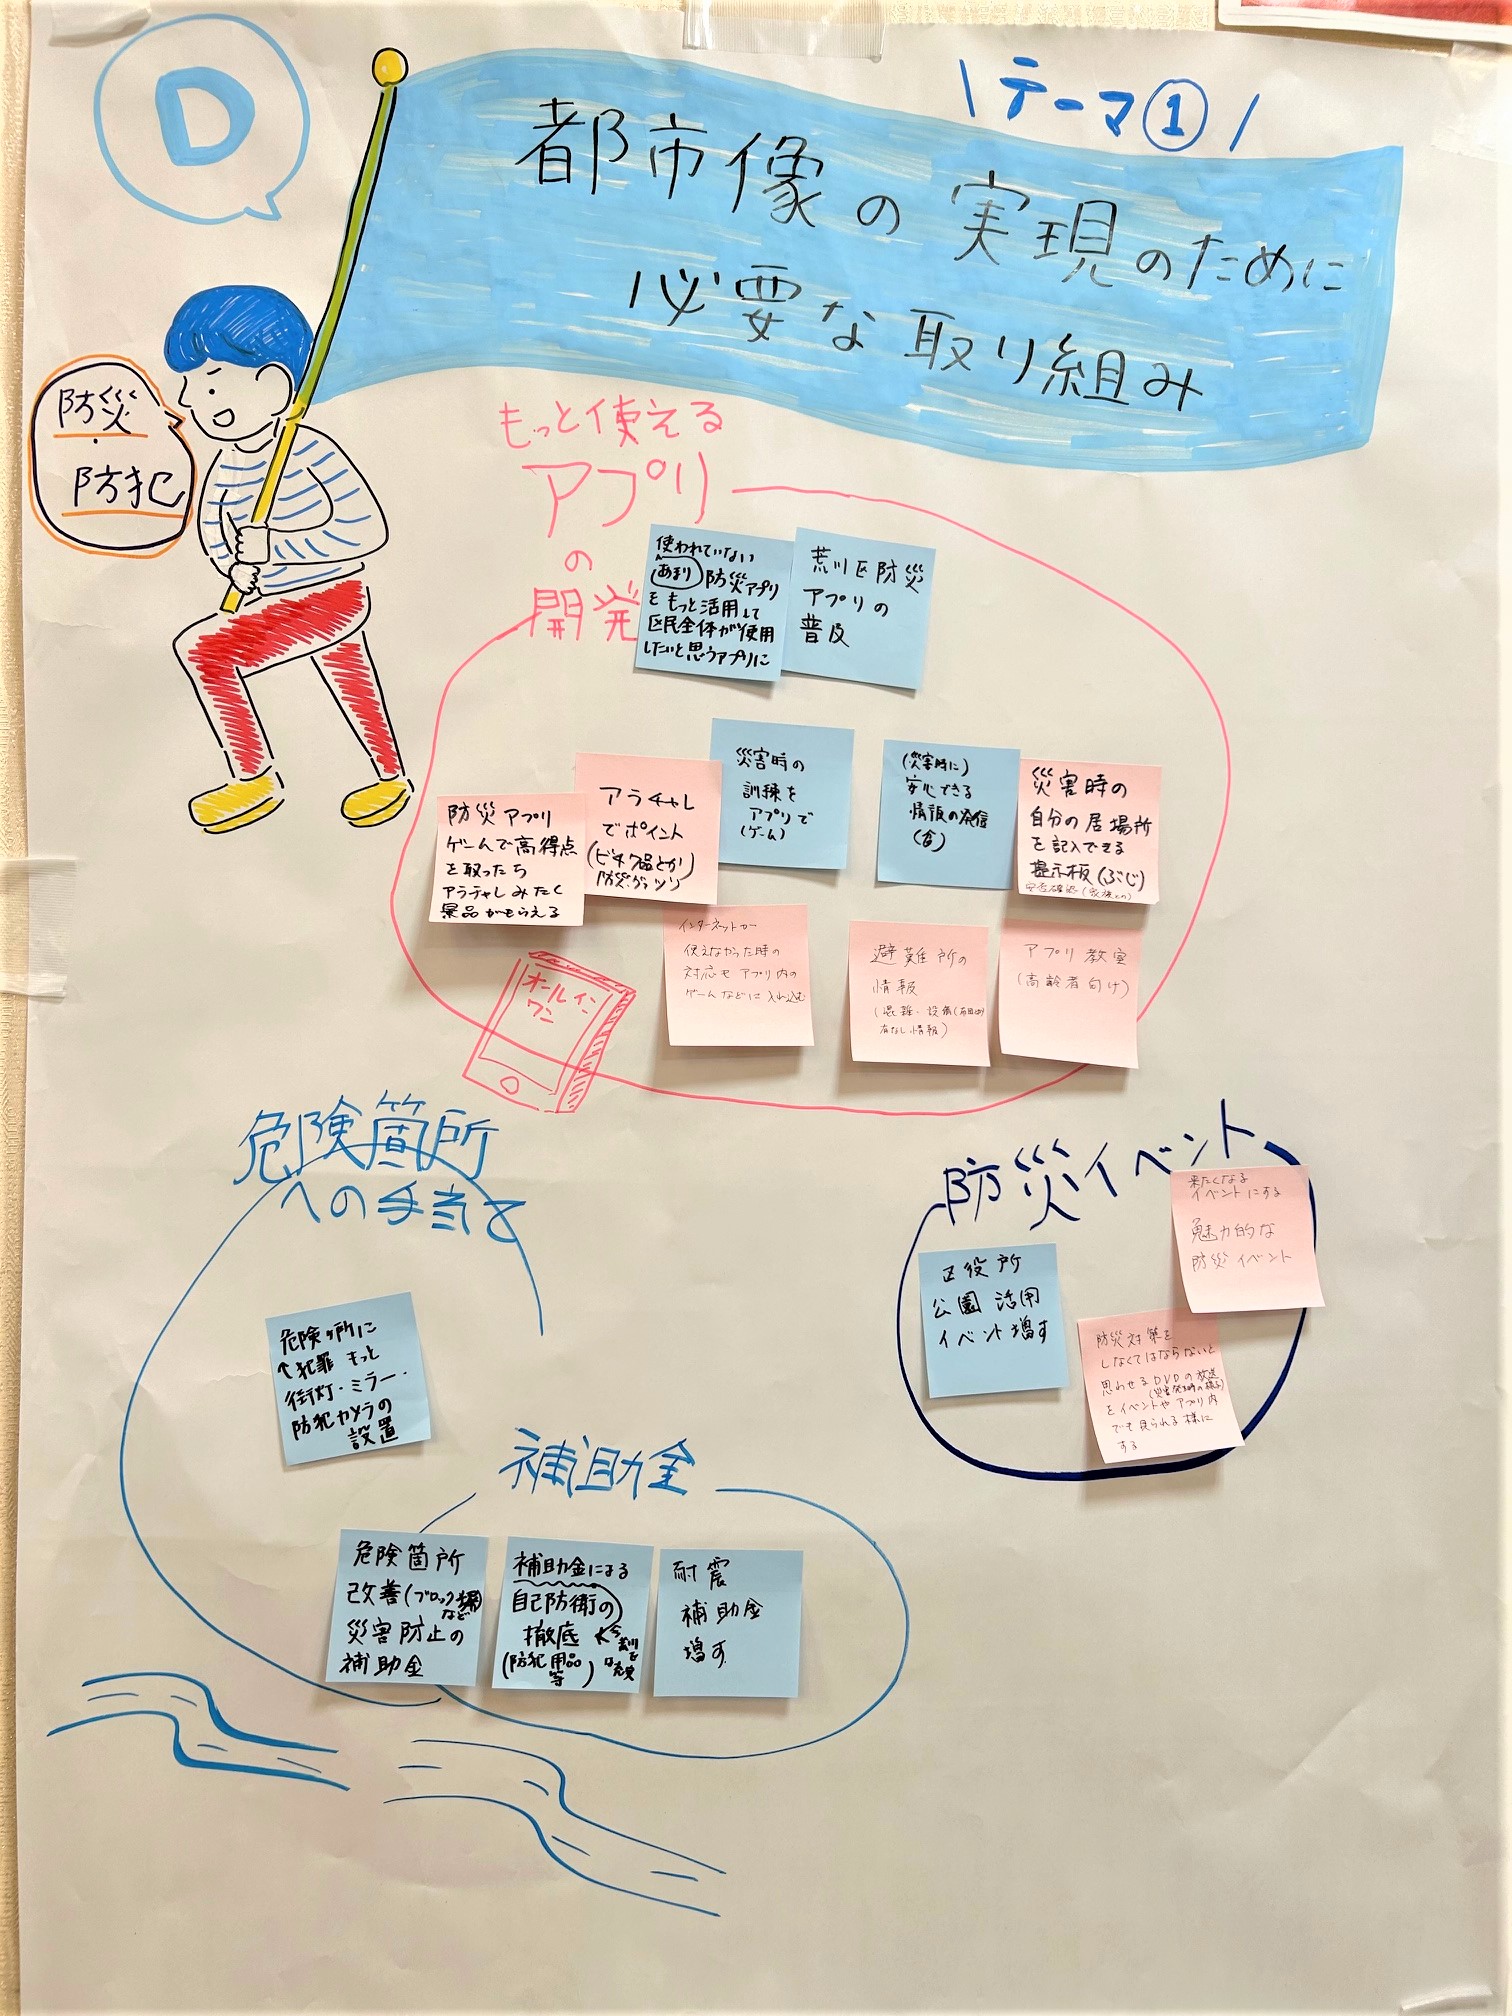 D
\テーマ①/
都市像の実現のために
必要な取り組み
防災
・
防犯
もっと使える
アプリ
の
開発
使われていない
あまり 防災アプリ
をもっと活用して
区民全体が使用
したいと思うアプリに
荒川区防災
アプリの
普及
防災アプリ
ゲームで高得点
を取ったら
アラチャレみたく
景品がもらえる
アラチャレ
でポイント
防災グッツ
災害時の
訓練を
アプリで
(ゲーム)
(災害時に)
安心できる
情報の発信
災害時の
自分の居場所
を記入できる
掲示板(ぶじ)
安否確認(家族との)
インターネットが
使えなかった時の
対応もアプリ内の
ゲームなどに入れ込む
避難所の
情報
有なし情報)
アプリ教室
(高齢者向け)
オールイン
ワン
危険箇所
への手当て
危険ヶ所に
↑犯罪 もっと
街灯・ミラー・
防犯カメラの
設置
防災イベント
来たくなる
イベントにする
魅力的な
防災イベント
区役所
公園活用
イベント増す
防災対策を
しなくてはならないと
思わせるDVDの放送
をイベントやアプリ内
でも見られる様に
する
補助金
危険箇所
改善(ブロック塀)
など
災害防止の
補助金
補助金による
自己防衛の
徹底
(防犯用品
等)
耐震
補助金
増す